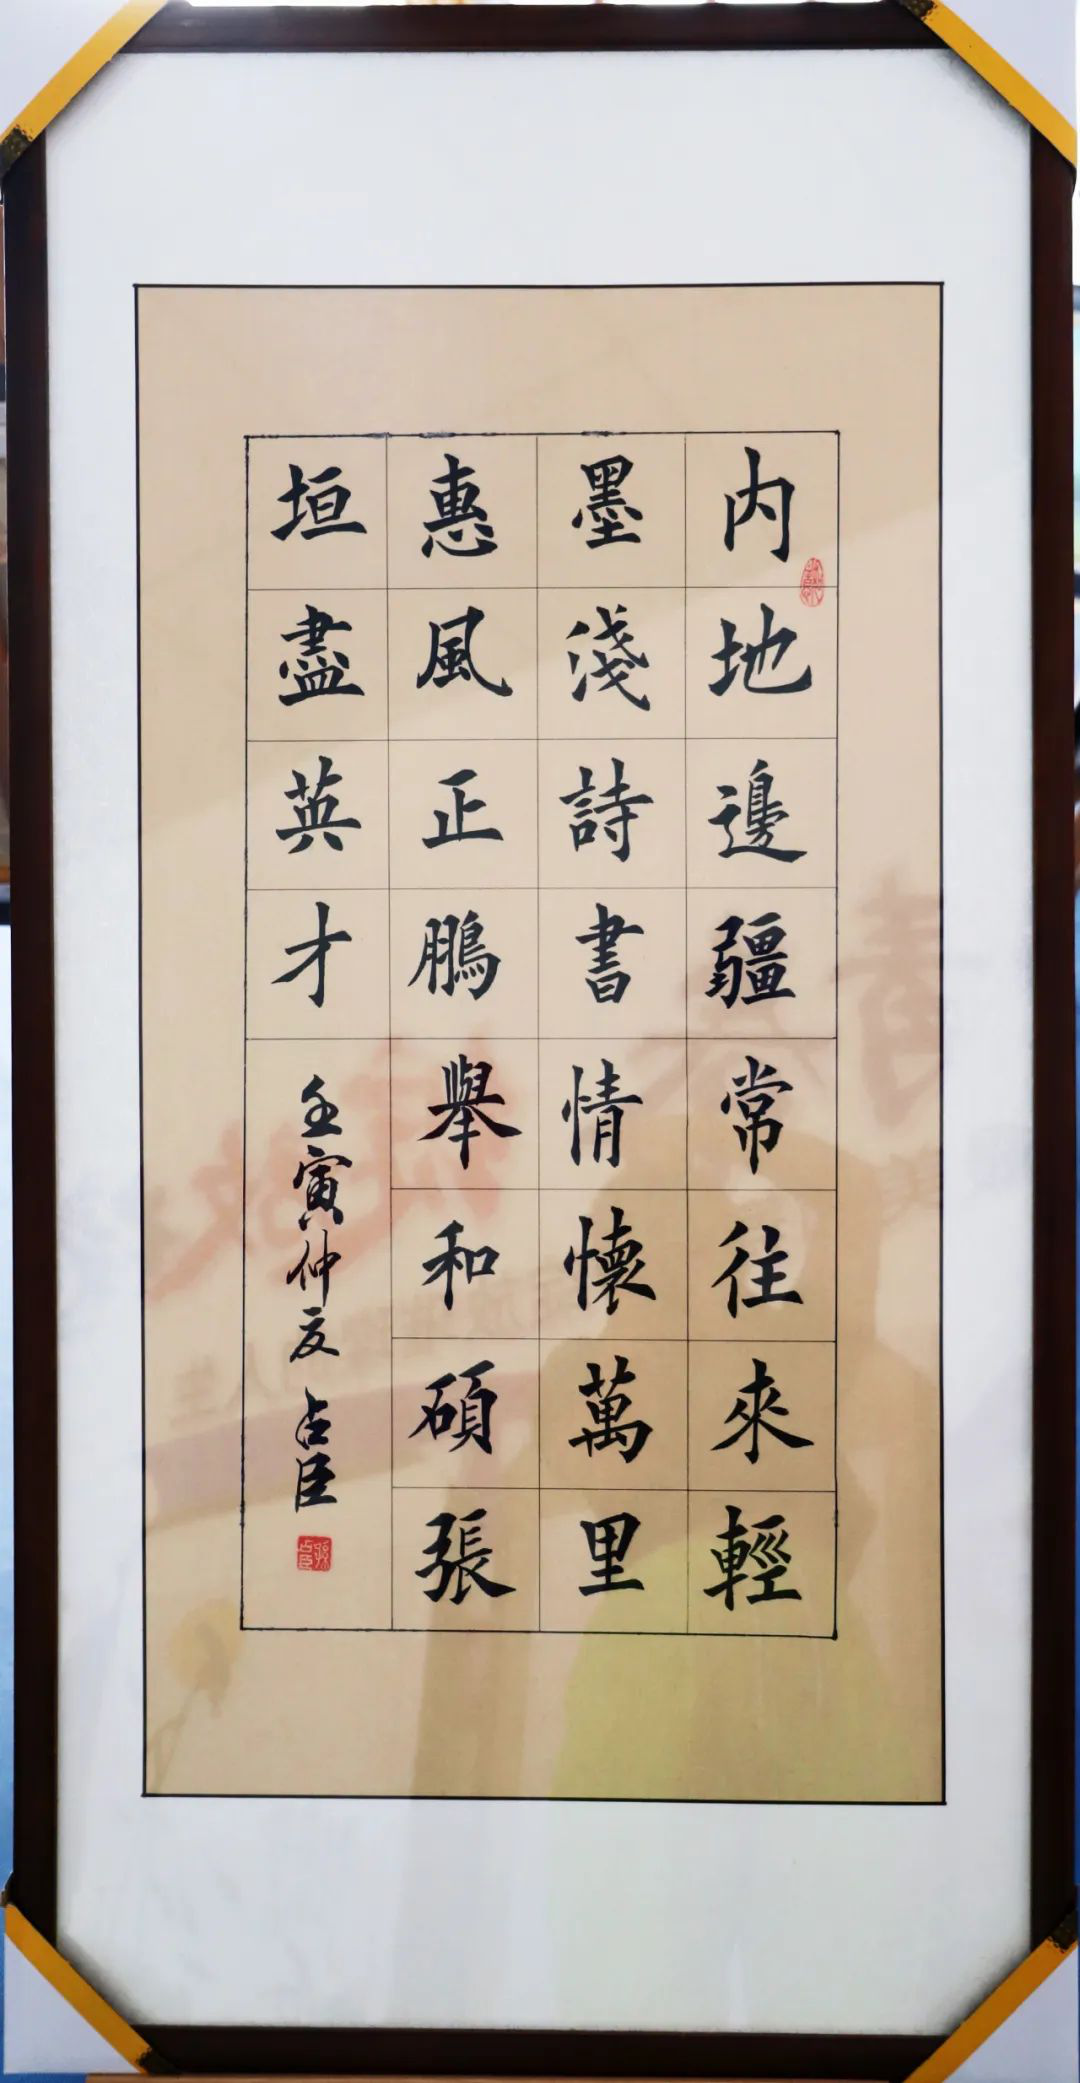 内地邊疆常往來輕
墨淺詩書情懷萬里
惠風正鵬舉和碩張
垣盡英才
壬寅仲夏 占臣
孫占臣